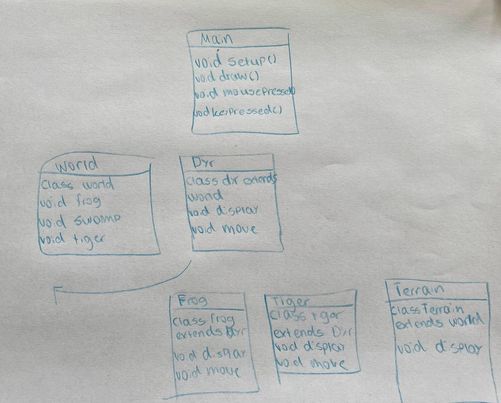 Main
void setup()
void draw()
void mousePressed()
void keyPressed()
World
class world
void frog
void swamp
void tiger
Dyr
class dyr extends
world
void display
void move
Frog
class frog
extends Dyr
void display
void move
Tiger
class tiger
extends Dyr
void display
void move
Terrain
class Terrain
extends world
void display